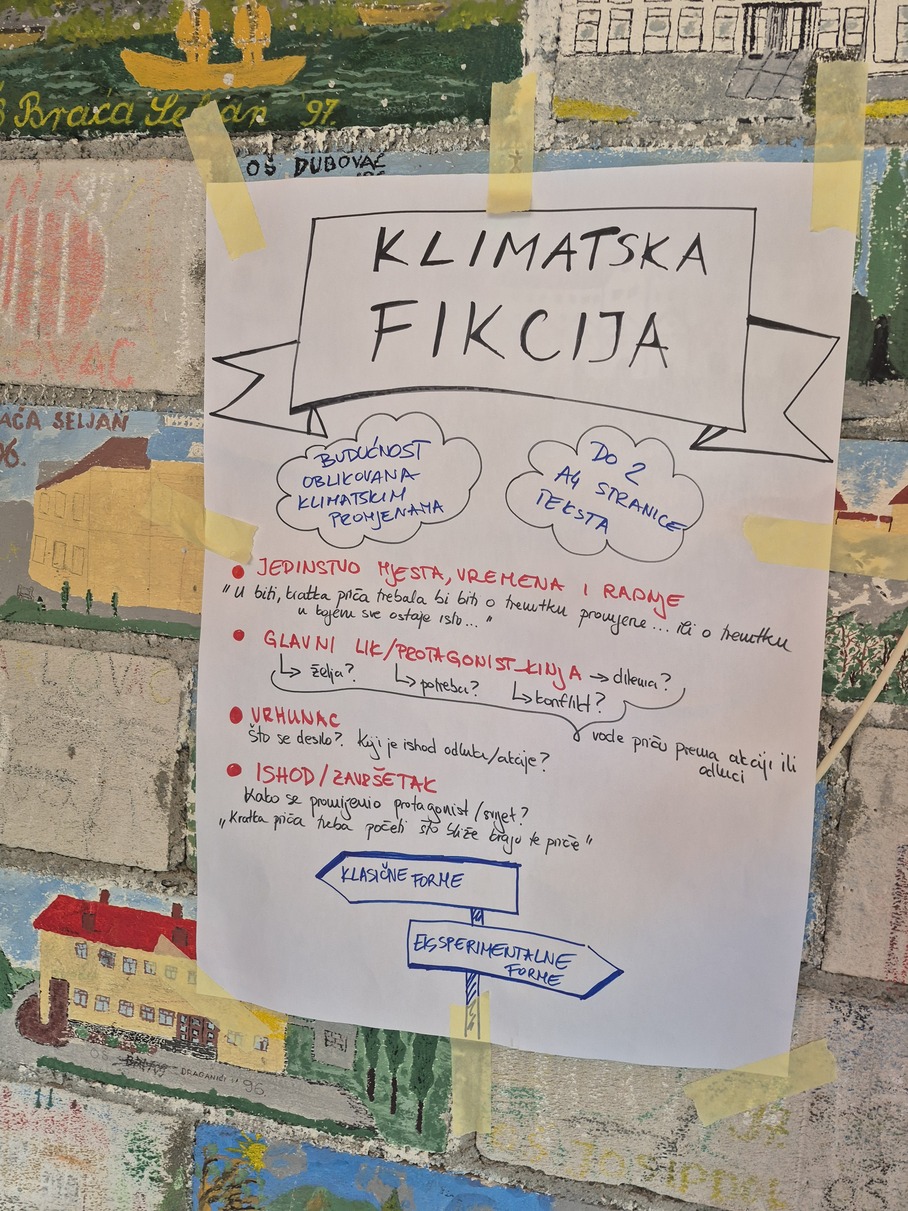 Š Braća Seljan '97.
OŠ DUBOVAC
KLIMATSKA
FIKCIJA
AĆA SELJAN
96.
BUDUĆNOST
OBLIKOVANA
KLIMATSKIM
PROMJENAMA
DO 2
A4 STRANICE
TEKSTA
JEDINSTVO MJESTA, VREMENA I RADNJE
"U biti, kratka priča trebala bi biti o trenutku promjene... ili o trenutku
u kojem sve ostaje isto..."
GLAVNI LIK/PROTAGONIST_KINJA → dilema?
želja? potreba? konflikt?
vode priču prema akciji ili
odluci
VRHUNAC
Što se desilo? Koji je ishod odluke/akcije?
ISHOD/ZAVRŠETAK
Kako se promijenio protagonist/svijet?
„Kratka priča treba početi što bliže kraju te priče"
KLASIČNE FORME
EKSPERIMENTALNE
FORME
DRAGANIĆI "96